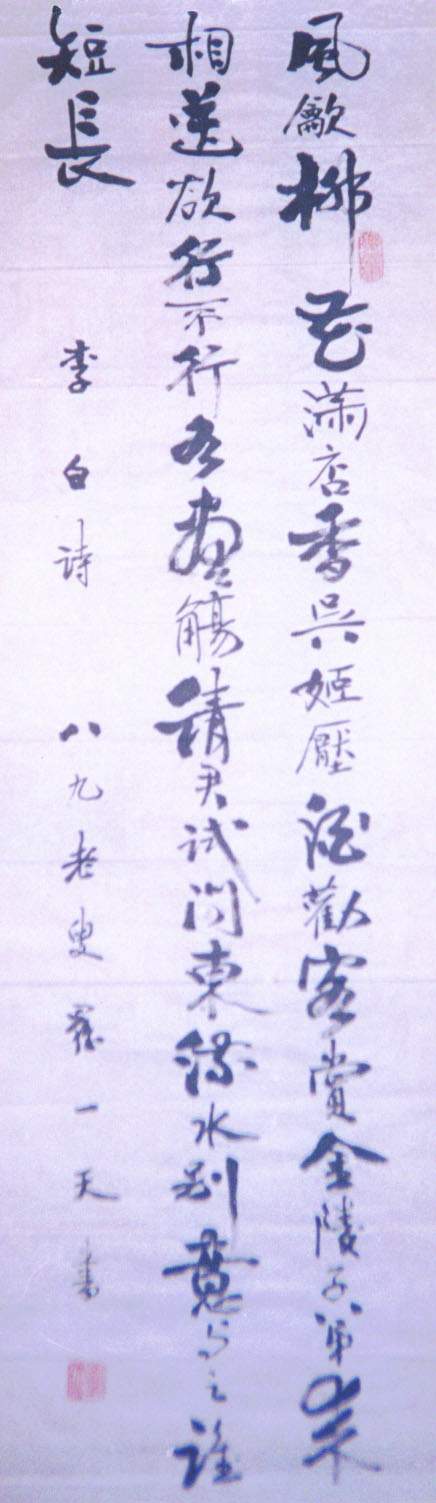 風龡柳花滿店香吳姬壓酒勸客賞金陵子弟来
相送欲行不行各盡觴請君試問東流水別意与之誰
短長 李白詩 八九老叟 一天書